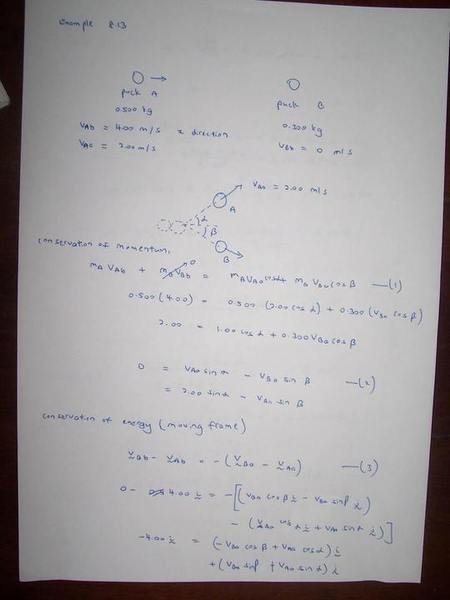 Example 8.13
puck A
0.500 kg
vAb = 4.00 m/s x direction
vAa = 2.00 m/s
puck B
0.300 kg
vBb = 0 m/s
vAa = 2.00 m/s
α
A
β
B
conservation of momentum,
mA vAb + mB vBb 0 = mA vAa cos α + mB vBa cos β —(1)
0.500 (4.00) = 0.500 (2.00 cos α) + 0.300 (vBa cos β)
2.00 = 1.00 cos α + 0.300 vBa cos β
0 = vAa sin α - vBa sin β —(2)
= 2.00 sin α - vBa sin β
conservation of energy (moving frame)
vBb - vAb = -(vBa - vAa) —(3)
0 - 4.00 i = -[(vBa cos β i - vBa sin β j)
- (vAa cos α i + vAa sin α j)]
-4.00 i = (-vBa cos β + vAa cos α) i
+ (vBa sin β + vAa sin α) j